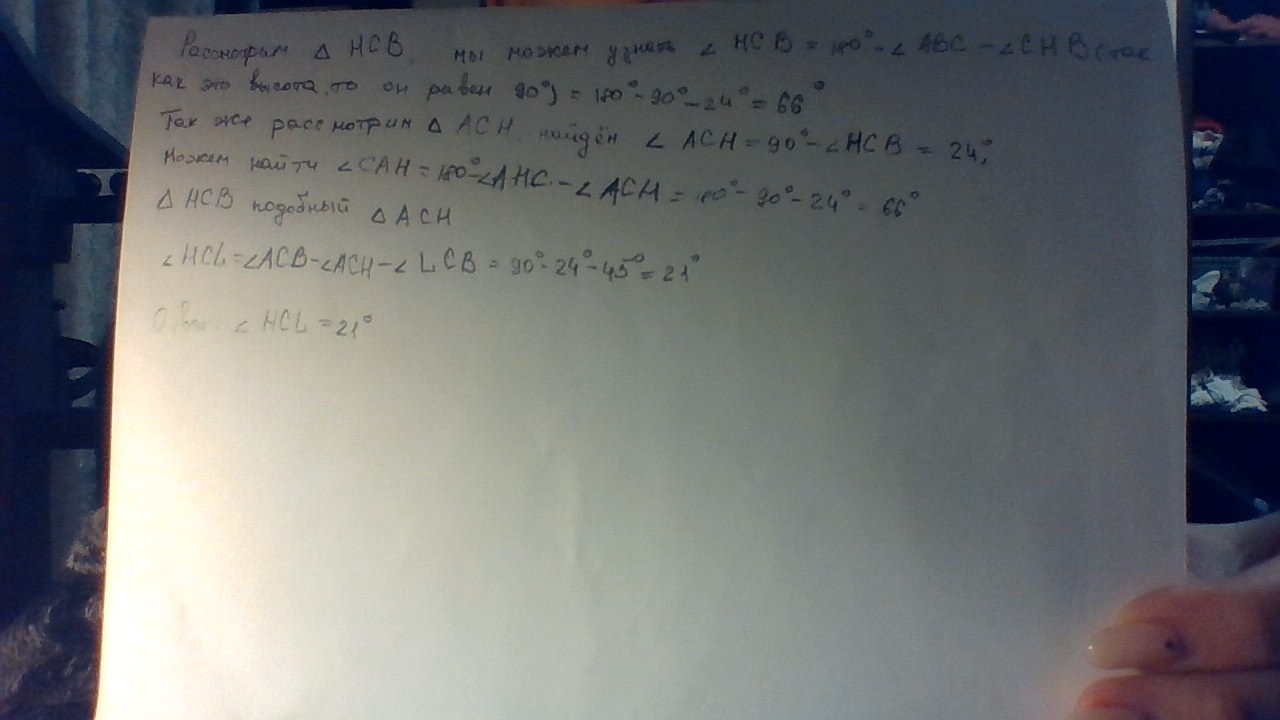 Рассмотрим △ HCB, мы можем узнать ∠ HCB = 180° - ∠ ABC - ∠CHB (так
как это высота, то он равен 90°) = 180° - 90° - 24° = 66°
Так же рассмотрим △ ACH, найдём ∠ ACH = 90° - ∠HCB = 24°,
можем найти ∠CAH = 180° - ∠AHC - ∠ ACH = 180° - 90° - 24° = 66°
△ HCB подобный △ ACH
∠HCL = ∠ACB - ∠ACH - ∠ LCB = 90° - 24° - 45° = 21°
Ответ: ∠ HCL = 21°